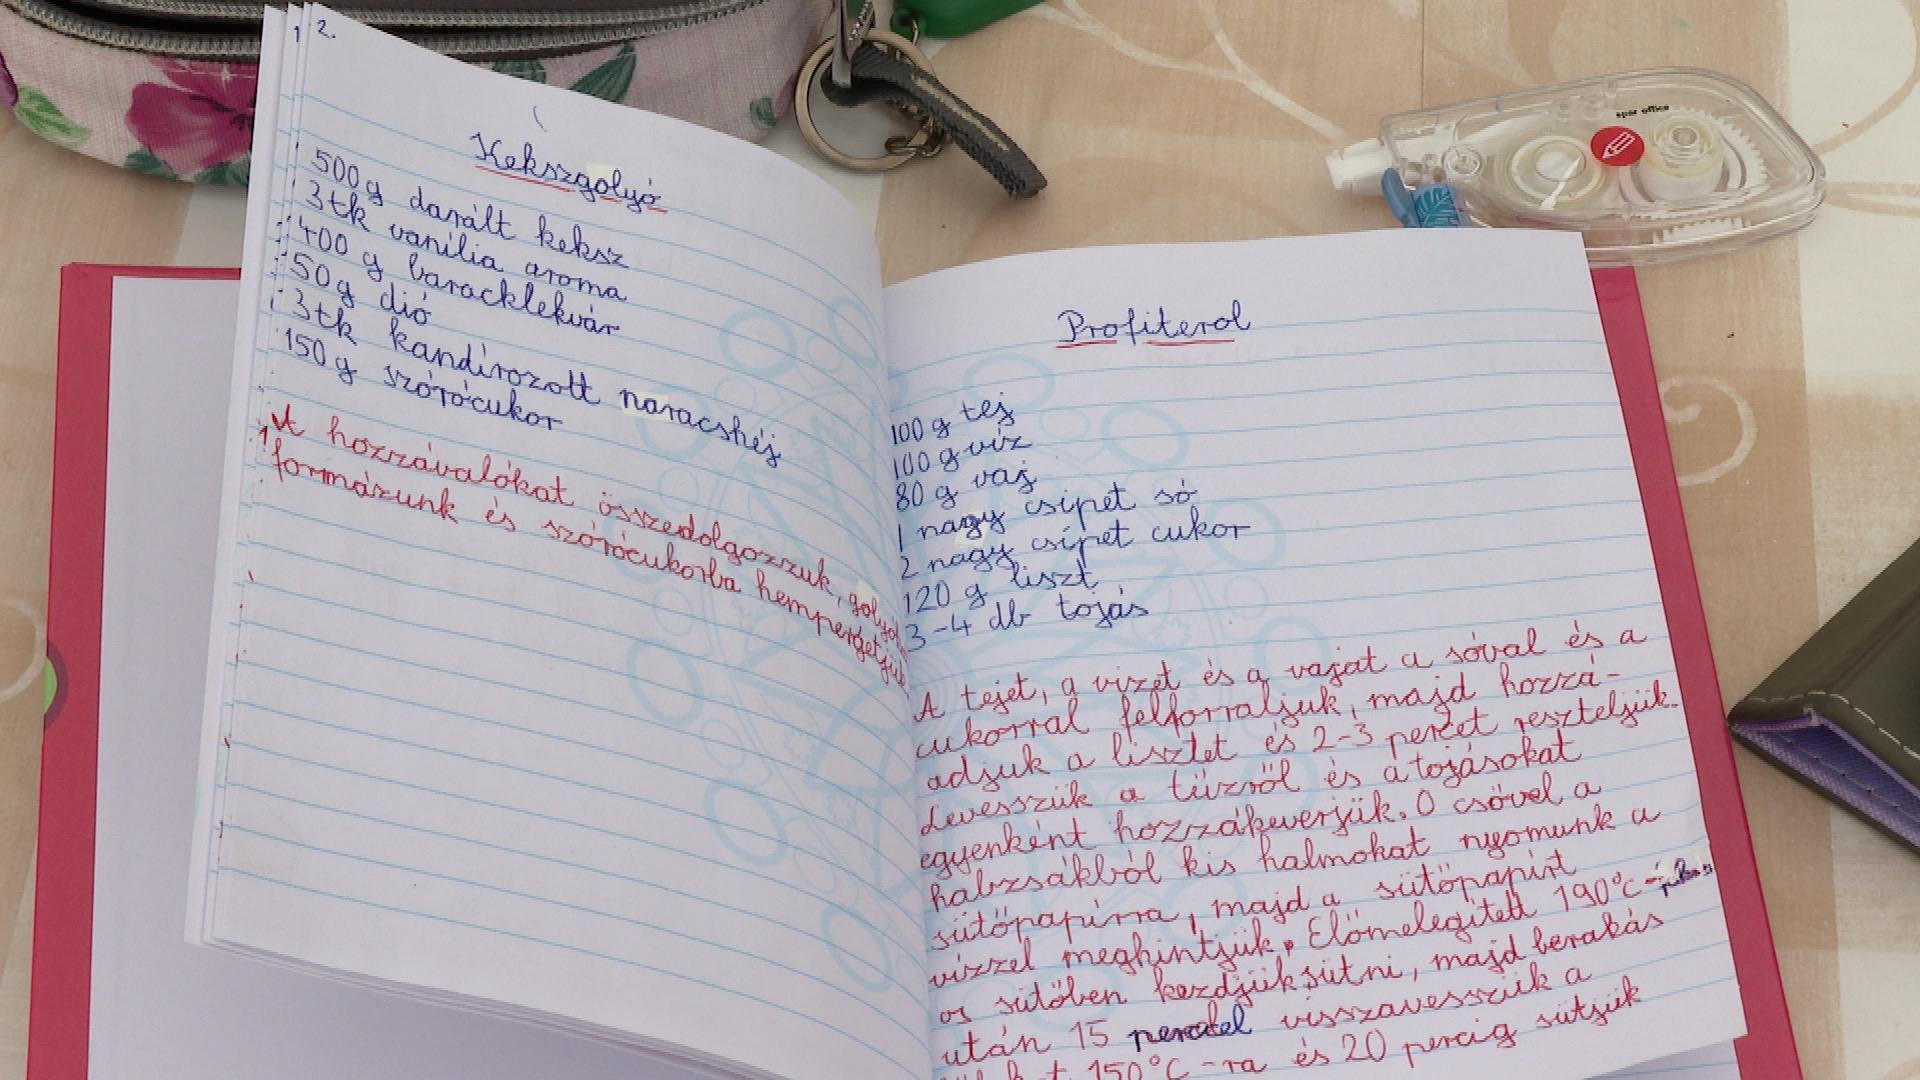 1
2.
Kekszgolyó
500g darált keksz
3tk vanília aroma
400 g baracklekvár
50g dió
3tk kandírozott naracshéj
150g szórócukor
A hozzávalókat összedolgozzuk, golyó
formázunk és szórócukorba hempergetjük
Profiterol
100 g tej
100 g víz
80 g vaj
1 nagy csipet só
2 nagy csipet cukor
120 g liszt
3-4 db tojás
A tejet, a vizet és a vajat a sóval és a
cukorral felforraljuk, majd hozzá-
adjuk a lisztet és 2-3 percet reszteljük.
Levesszük a tűzről és a tojásokat
egyenként hozzákeverjük. O csővel a
habzsákból kis halmokat nyomunk a
sütőpapírra, majd a sütőpapírt
vízzel meghintjük. Előmelegített 190°C-
os sütőben kezdjük sütni, majd berakás
után 15 perccel visszavesszük a
150°C-ra és 20 percig sütjük
spar office